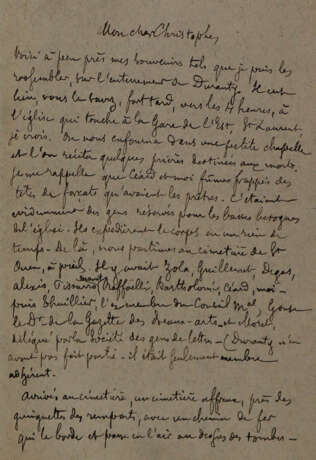 Mon cher Christophe,
Voici à peu près mes souvenirs tels que je puis les
rassembler, sur l'enterrement de Duranty. Il eut
lieu, vous le savez, fort tard, vers les 4 heures, à
l'église qui touche à la Gare de l'Est, St Laurent,
je crois. On nous enfourna dans une petite chapelle
et l'on récita quelques prières destinées aux morts.
Je me rappelle que Céard et moi fûmes frappés des
têtes de forçats qu'avaient les prêtres. C'étaient
évidemment des gens réservés pour les basses besognes
de l'église. Ils expédièrent le corps en un rien de
temps - de là, nous partîmes au cimetière de St
Ouen, à pied. Il y avait Zola, Guillemet, Degas,
Alexis, Pissarro, Raffaelli, Bartholomé, Céard, moi -
puis Thuillier, l'ex membre du Conseil Mal,
le Dr de la Gazette des beaux-arts et
délégué par la Société des gens de lettres - (Duranty n'en
avait pas fait partie - il était seulement membre
adhérent.
Arrivés au cimetière, un cimetière affreux, près des
guinguettes des remparts, avec un chemin de fer
qui le borde et passe en l'air au dessus des tombes -